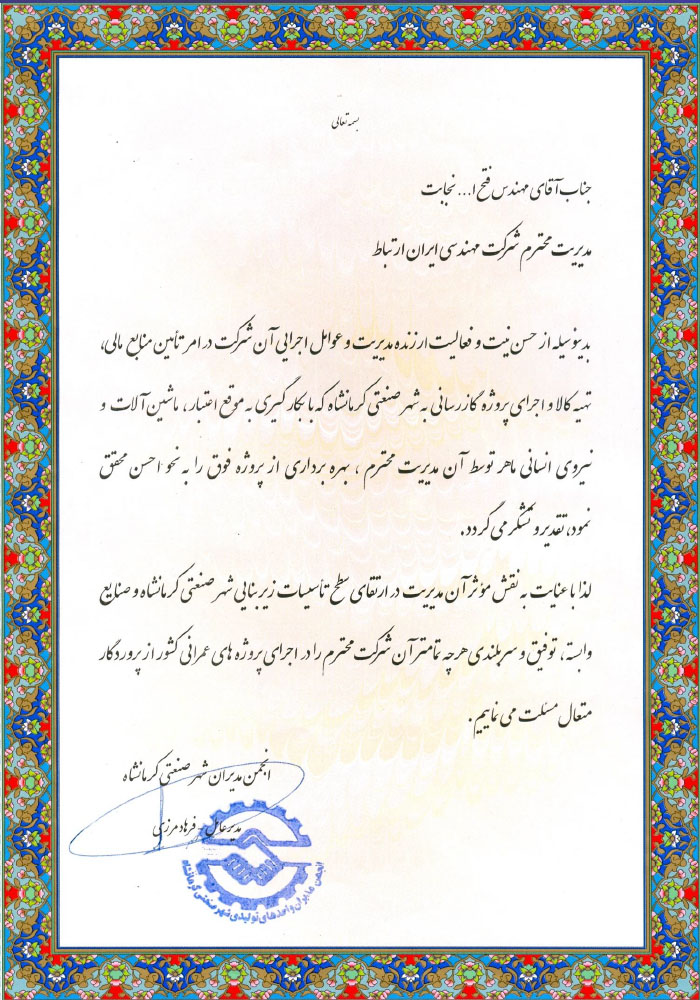 بسمه تعالی
جناب آقای مهندس فتح ا... نجابت
مدیریت محترم شرکت مهندسی ایران ارتباط
بدینوسیله از حسن نیت و فعالیت ارزنده مدیریت و عوامل اجرایی آن شرکت در امر تأمین منابع مالی،
تهیه کالا و اجرای پروژه گازرسانی به شهر صنعتی کرمانشاه که با بکارگیری به موقع اعتبار، ماشین آلات و
نیروی انسانی ماهر توسط آن مدیریت محترم، بهره برداری از پروژه فوق را به نحو احسن محقق
نمود، تقدیر و تشکر می گردد.
لذا با عنایت به نقش مؤثر آن مدیریت در ارتقای سطح تأسیسات زیربنایی شهر صنعتی کرمانشاه و صنایع
وابسته، توفیق و سربلندی هرچه تمامتر آن شرکت محترم را در اجرای پروژه های عمرانی کشور از پروردگار
متعال مسئلت می نماییم.
انجمن مدیران شهر صنعتی کرمانشاه
مدیرعامل - فرهاد مرزی
انجمن مدیران واحدهای تولیدی شهر صنعتی کرمانشاه